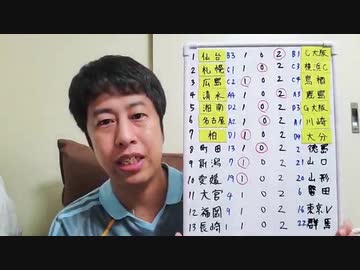 1 仙台 B3 1 0 2 B1 C大阪
2 札幌 C1 1 0 2 C3 横浜C
3 広島 C2 1 0 2 C4 鳥栖
4 清水 A4 1 0 2 A3 鹿島
5 湘南 D2 1 0 2 D3 G大阪
6 名古屋 A2 1 0 2 A1 川崎
7 柏 D1 1 0 2 D4 大分
8 町田 13 1 0 2 2 徳島
9 新潟 7 1 0 2 21 山口
10 愛媛 19 1 0 2 20 山形
11 大宮 4 1 0 2 6 磐田
12 福岡 9 1 0 2 16 東京V
13 長崎 1 1 0 2 22 群馬